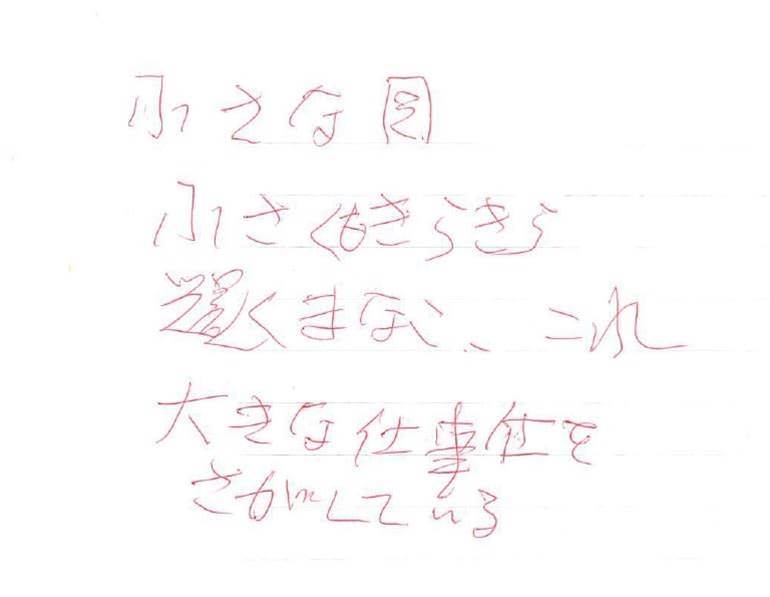 小さな国
小さくもきらきら
驚くまなこ、これ
大きな仕事仕を
さがしている